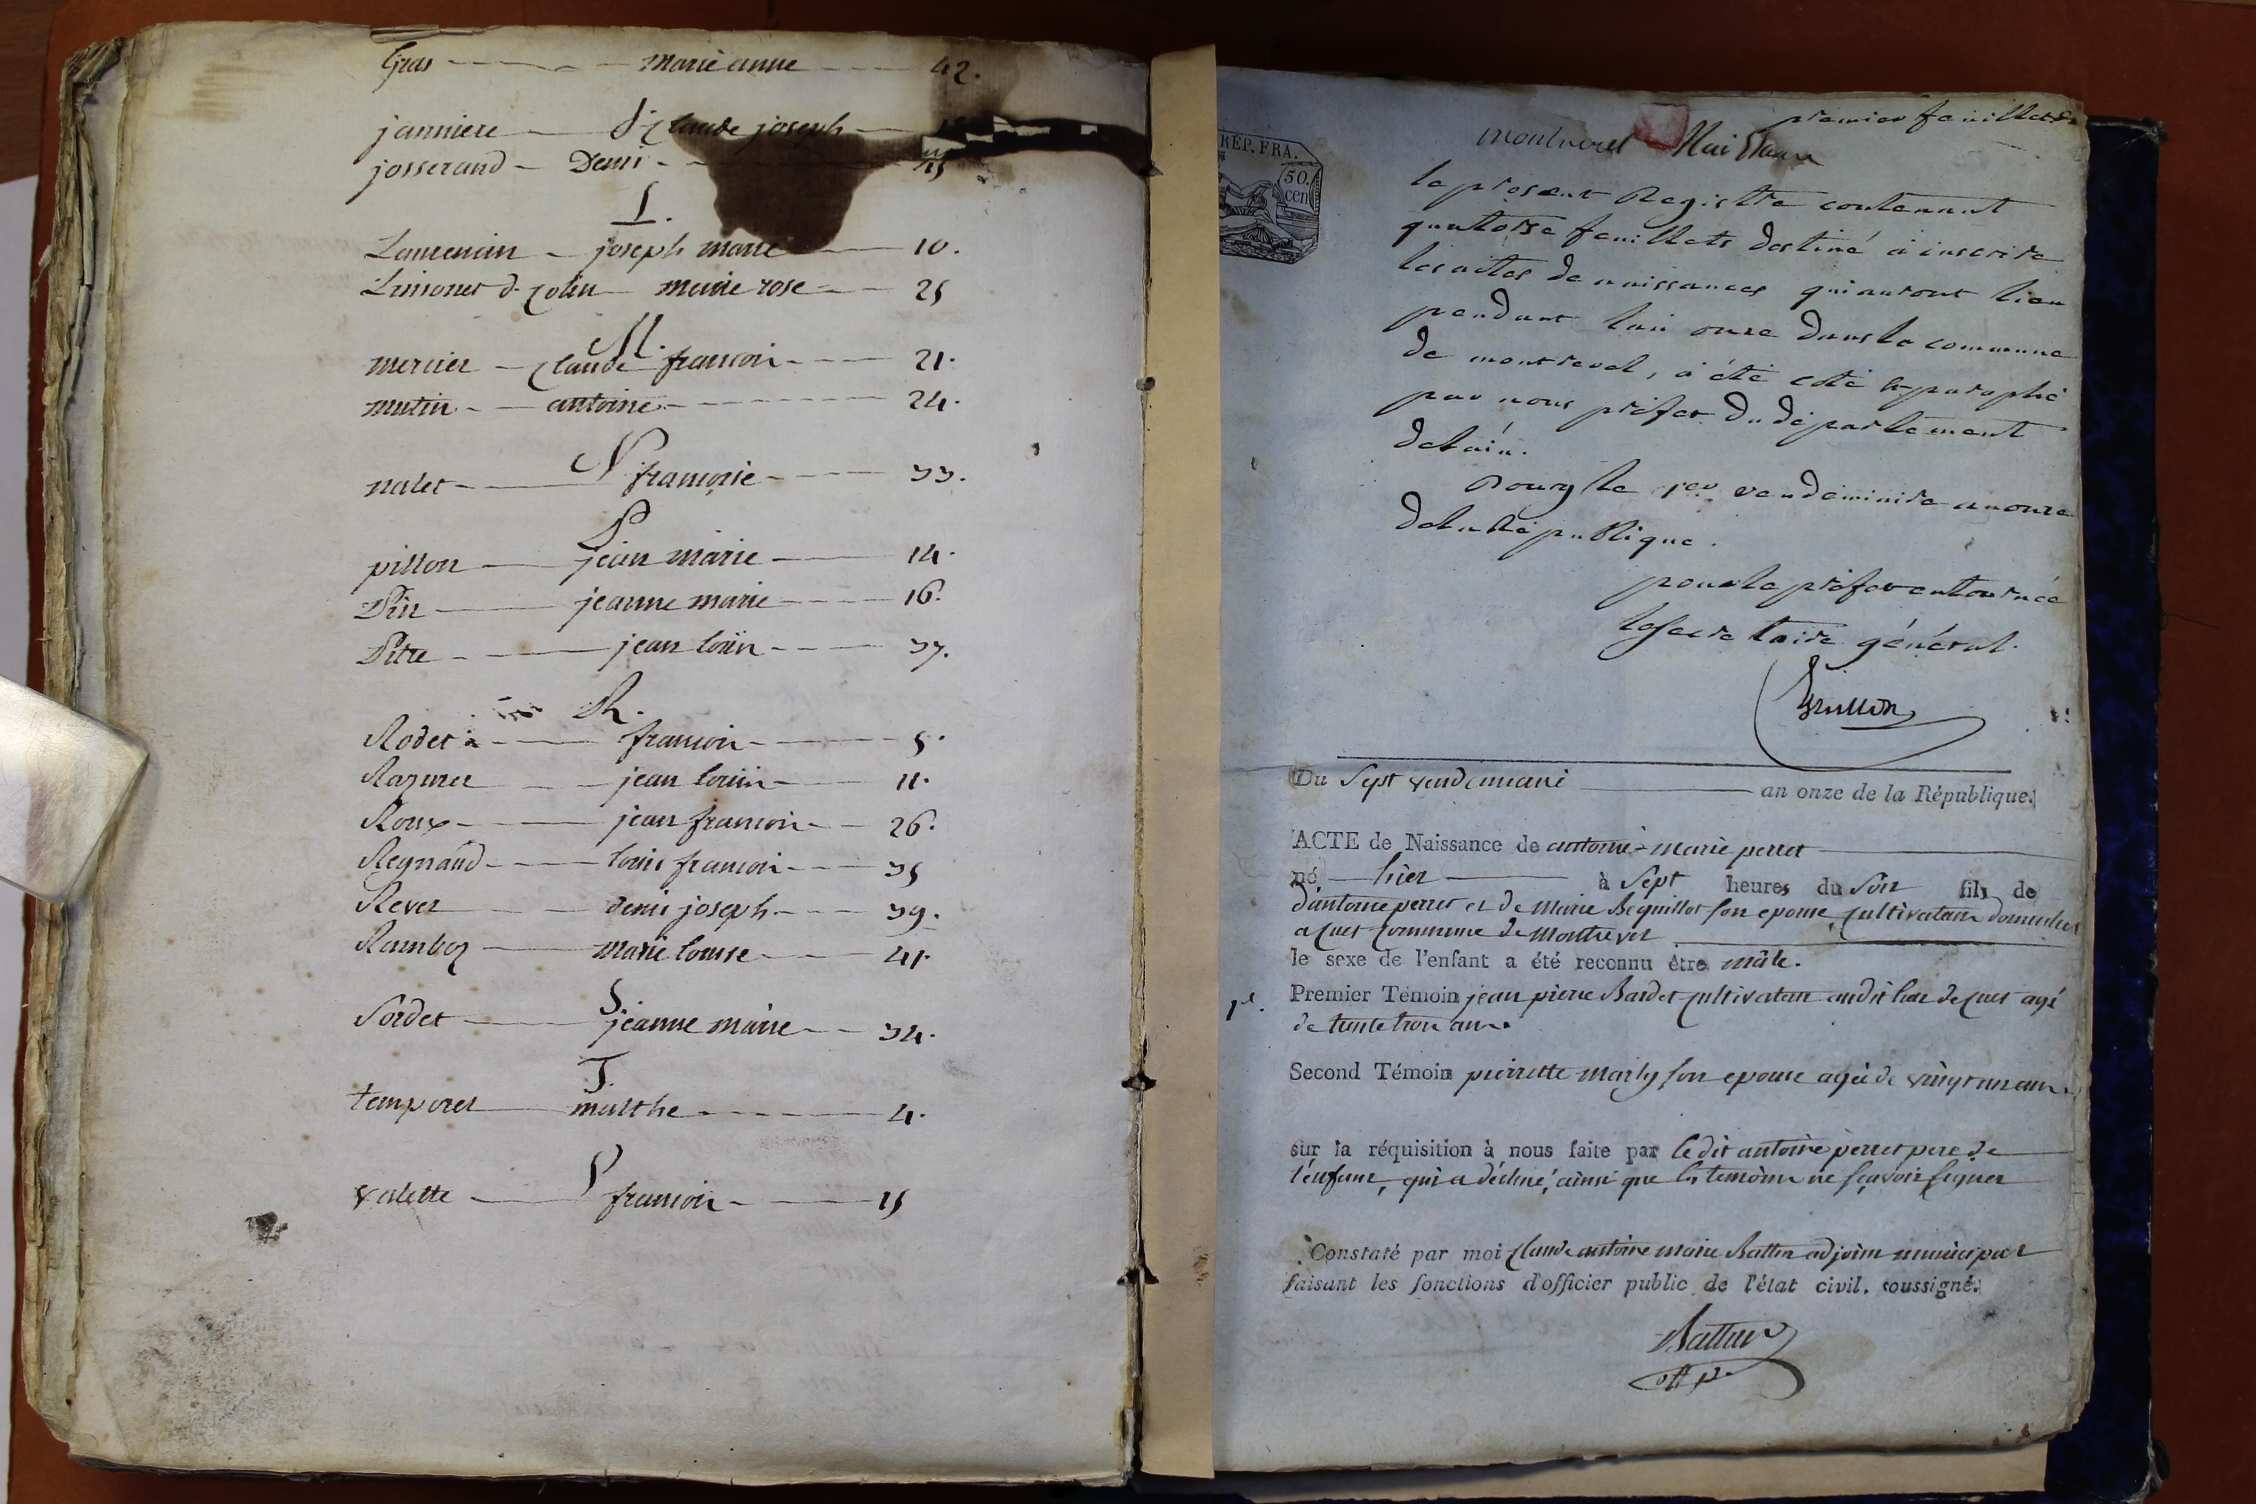 Gras marie anne 42.
janniere Claude joseph
josserand Denis
L.
joseph marie 10.
marie rose 25
M.
mercier claude francois 21.
mutin antoine 24.
N
nalet francoise 33.
P
pillon jean marie 14.
Pin jeanne marie 16.
Pitre jean louis 37.
R.
Rodet francois 5.
jean louis 11.
Roux jean francois 26.
Regnaud louis francois 35
Rever denis joseph 39.
Ramboz marie louise 41.
S
Sordet jeanne marie 34.
T.
temporel marthe 4.
V
valette francois 15
premier feuillet
montrevel
RÉP. FRA.
50.
cen
le présent Registre contenant
quatorze feuillets destiné à inscrire
les actes de naissances qui auront lieu
pendant l'an onze dans la commune
de montrevel, a été coté et paraphé
par nous préfet du département
de l'ain.
Bourg le 1er vendémiaire an onze
de la République.
pour le préfet en tournée
le secretaire général.
Du sept vendemiaire an onze de la République.
ACTE de Naissance de antoine-marie perret
né hier à sept heures du soir fils de
d'antoine perret et de marie Bequillot son epouse cultivateurs
a cuet commune de montrevel
le sexe de l'enfant a été reconnu être mâle.
1er. Premier Témoin jean pierre Bardet cultivateur audit lieu de cuet agé
de trente trois ans
Second Témoin pierrette marly son epouse agée de vingt un ans
sur la réquisition à nous faite par le dit antoine perret pere de
l'enfant, qui a décliné, ainsi que les temoins ne sçavoir signer
Constaté par moi claude antoine marie Battin adjoint municipal
faisant les fonctions d'officier public de l'état civil, soussigné.